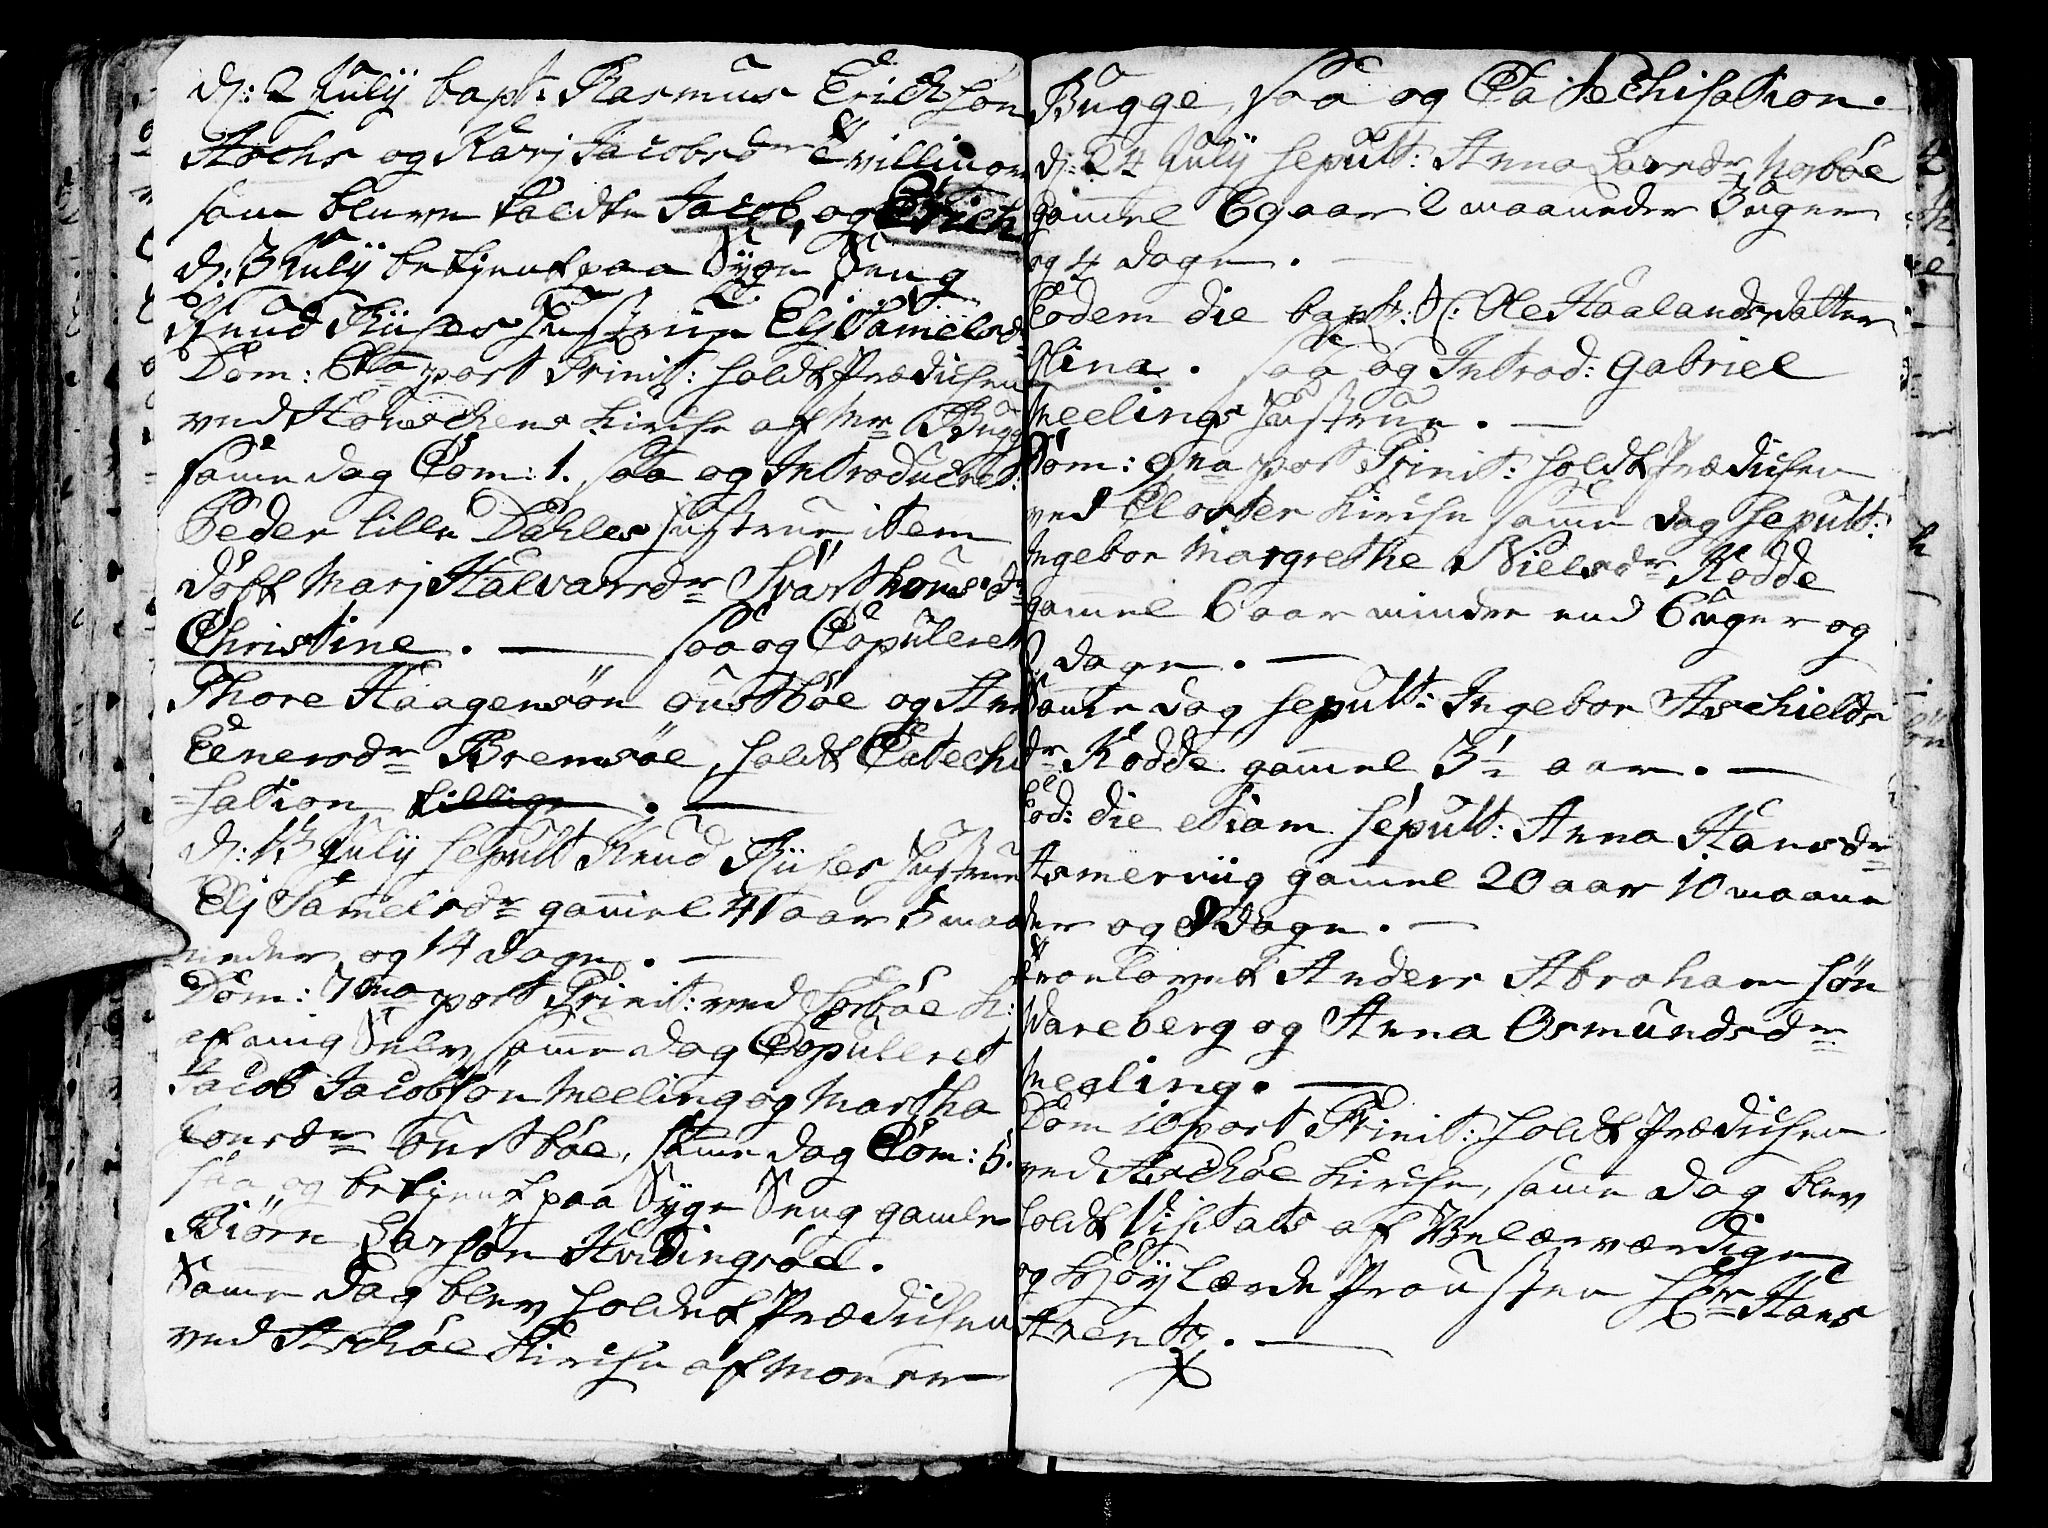 d: 2 July bapt: Rasmus Erichsøn
Aschs og Karj Jacobsdr Tvillinger
som bleven kaldte Jacob, og Erich
d: 3 July betjent paa Syge Seng
Knud Rükes Hustrue Elj Samuelsdr
Dom: 6ta post Trinit: holdt Prædichen
ved Hauschens Kirche af Mr Bugge
samme dag Com: 1. saa og Introduceret:
Peder lille Dahles Hustrue item
døbt Marj Halvarsdr Svarthous dr
Christine. — saa og Copuleret
Thore Haagensøn Oustbøe og Anna
Einersdr Bremsøe, holdt Catechi
=sation tillige. —
d: 13 July sepult Knud Rükes Hustrue
Elj Samuelsdr gammel 41 aar 5 maa
neder og 14 dage. —
Dom: 7ma post Trinit: ved Sørbøe K:
af mig Selv, samme dag Copuleret
Jacob Jacobsøn Meeling og Martha
Lonsdr Oustbøe, samme dag Com: 5.
saa og betjent paa Syge Seng gamle
Biørn Larsøn Hvidingsøe.
Samme dag blev holdet Prædichen
ved Aschøe Kirche af Monsr
Bugge, saa og Catechisation.
d: 24 July sepult: Anna Larsdr Norbøe
gammel 69 aar 2 maaneder 3 uger
og 4 dage. —
Eodem die bapt: N: Ole Haalands datter
Elina. saa og Introd: Gabriel
Meelings Hustrue. —
Dom: 9na post Trinit: holdt Prædichen
ved Closter Kirche samme dag sepult:
Ingebor Margrethe Nielsdr Rodde
gammel 6 aar mindre end 6 uger og
2 dage. —
Samme dag sepult: Ingebor Aschields
dr Rodde gammel 3½ aar. —
Eod: die etiam sepult: Anna Hansdr
Asmerviig gammel 20 aar 10 maane
der og 8 dage. —
Troelovet Anders Abraham søn
Wareberg og Anna Osmundsdr
Meeling. —
Dom 10 post Trinit: holdt Prædichen
ved Aschøe Kirche, samme dag blev
holdt Visitats af Velærværdige
og Høylærde Prousten Hr Hans
Arentz. —